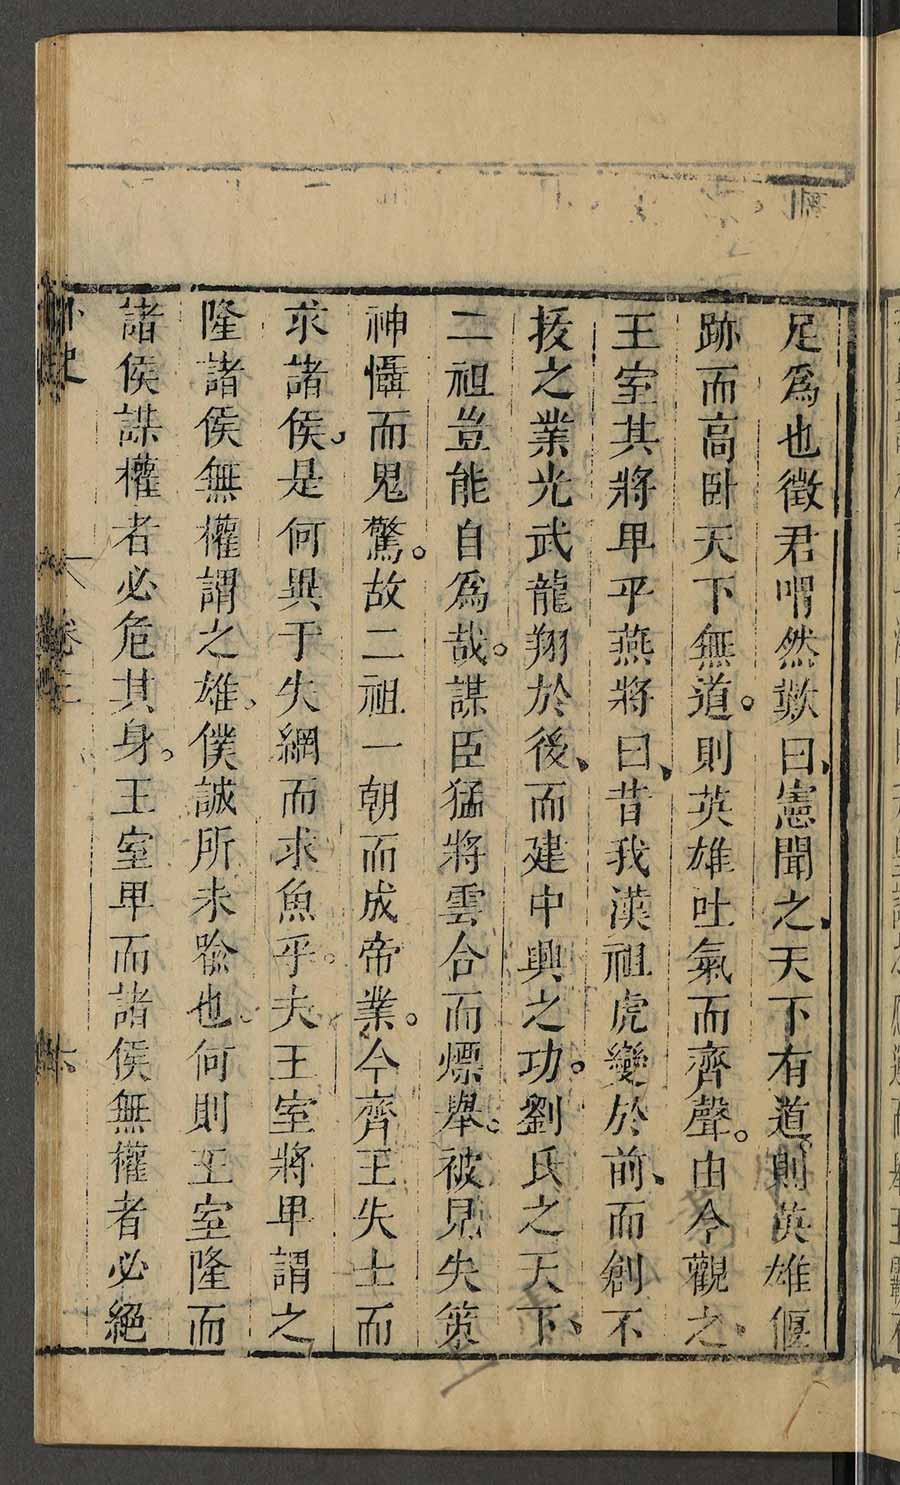 足爲也徵君喟然歎曰、憲聞之、天下有道則英雄偃
跡而高臥天下無道。則英雄吐氣而齊聲。由今觀之、
王室其將卑乎燕將曰、昔我漢祖虎變於前、而創不
拔之業光武龍翔於後、而建中興之功。劉氏之天下、
二祖豈能自爲哉。謀臣猛將雲合而熛舉。被見失策
神懾而鬼驚。故二祖一朝而成帝業。今齊王失士而
求諸侯、是何異于失網而求魚乎。夫王室將卑謂之
隆諸侯無權謂之雄、僕誠所未喻也。何則王室隆而
諸侯謀權者必危其身。王室卑而諸侯無權者必絕
外史 卷三 六